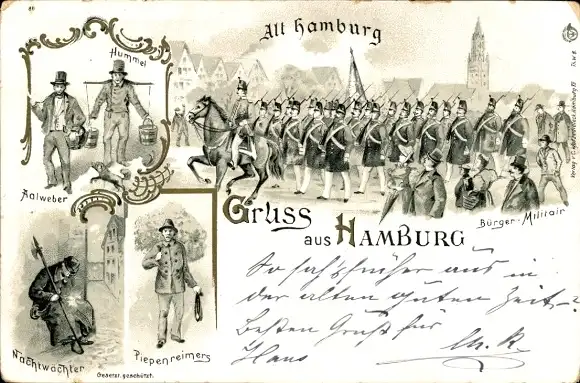 Alt Hamburg
Hummel
Aalweber
Bürger-Militair
Gruss
aus HAMBURG
So sah's früher aus in
der alten guten Zeit.-
Besten Gruß für
Hans
M. R.
Nachtwächter
Piepenreimers
Gesetzl. geschützt.